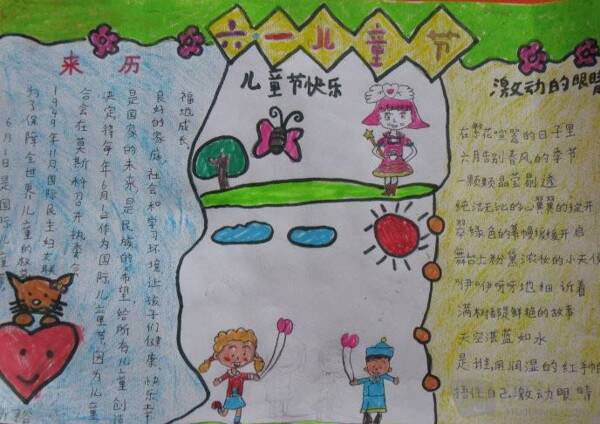 六·一儿童节
来历
6月1日是国际儿童
为了保障全世界儿童的权
1949年11月国际民主妇女联
合会在莫斯科召开执委会
决定将每年6月1作为国际儿童节。因为儿童
是国家的未来,是民族的希望,给所有儿童创造
良好的家庭、社会和学习环境让孩子们健康、快乐、幸
福地成长。
儿童节快乐
激动的眼睛
在繁花喧嚣的日子里
六月告别春风的季节
一颗颗晶莹剔透
纯洁无比的心翼翼的绽开
翠绿色的幕幔缓缓开启
舞台上粉黛浓妆的小天使
"伊"伊呀呀地细诉着
满树都是鲜艳的故事
天空湛蓝如水
是谁,用润湿的红手帕
捂住自己激动眼睛